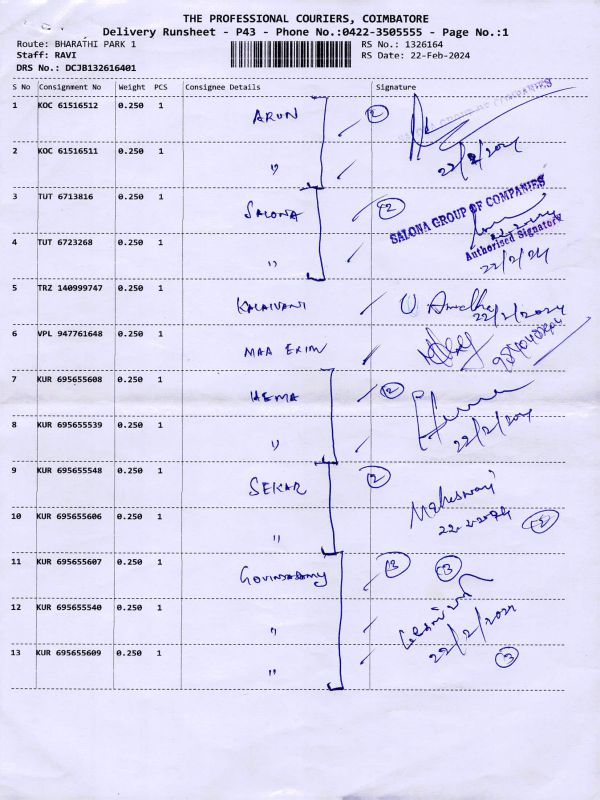 THE PROFESSIONAL COURIERS, COIMBATORE
Delivery Runsheet - P43 - Phone No.:0422-3505555 - Page No.:1
Route: BHARATHI PARK 1 RS No.: 1326164
Staff: RAVI RS Date: 22-Feb-2024
DRS No.: DCJB132616401
S No Consignment No Weight PCS Consignee Details Signature
1 KOC 61516512 0.250 1 ARUN 2 SALONA GROUP OF COMPANIES
2 KOC 61516511 0.250 1 " 22/2/2024
3 TUT 6713816 0.250 1 SALONA 2 SALONA GROUP OF COMPANIES
Authorised Signatory
4 TUT 6723268 0.250 1 " 22/2/24
5 TRZ 140999747 0.250 1 KALAIVANI 22/2/2024
6 VPL 947761648 0.250 1 MAA EXIM
7 KUR 695655608 0.250 1 HEMA 2
8 KUR 695655539 0.250 1 " 22/2/2024
9 KUR 695655548 0.250 1 SEKAR 2 Maheswari
10 KUR 695655606 0.250 1 " 22.2.2024 2
11 KUR 695655607 0.250 1 GOVINDASAMY 3 3
12 KUR 695655540 0.250 1 " 22/2/2024
13 KUR 695655609 0.250 1 " 3